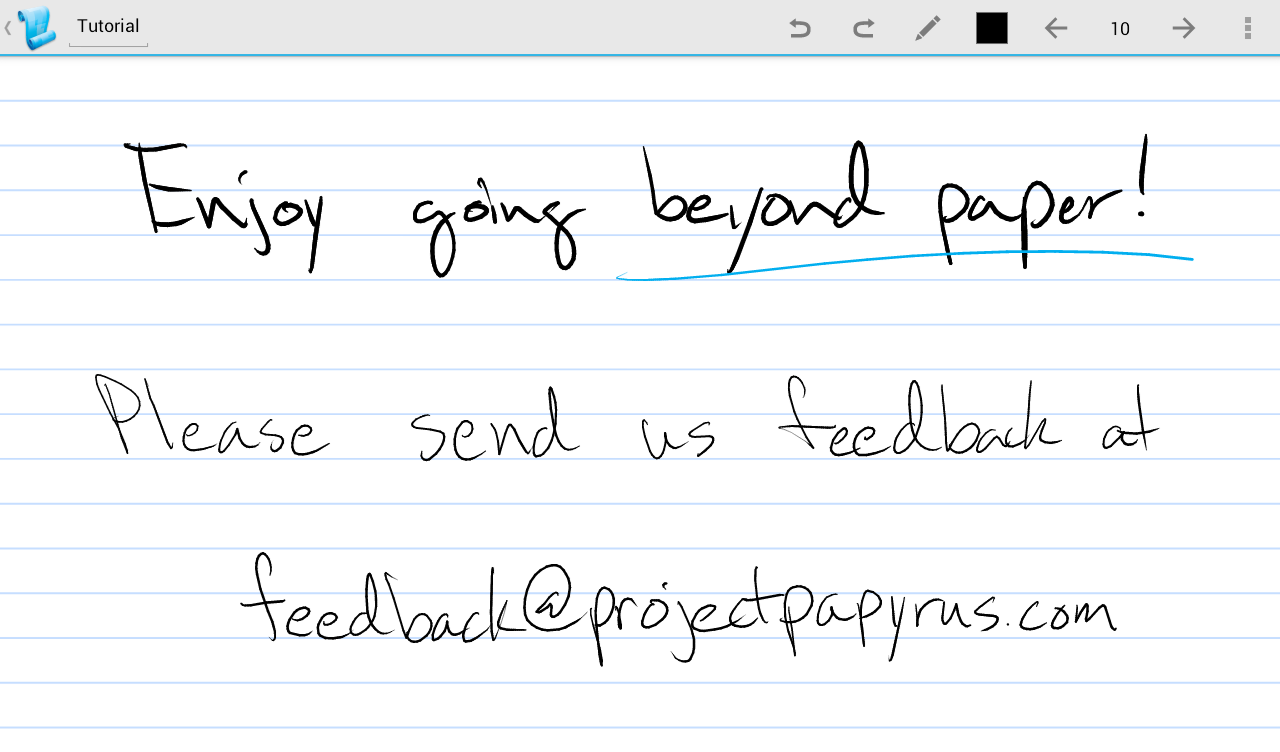 Tutorial 10
Enjoy going beyond paper!
Please send us feedback at
feedback@projectpapyrus.com